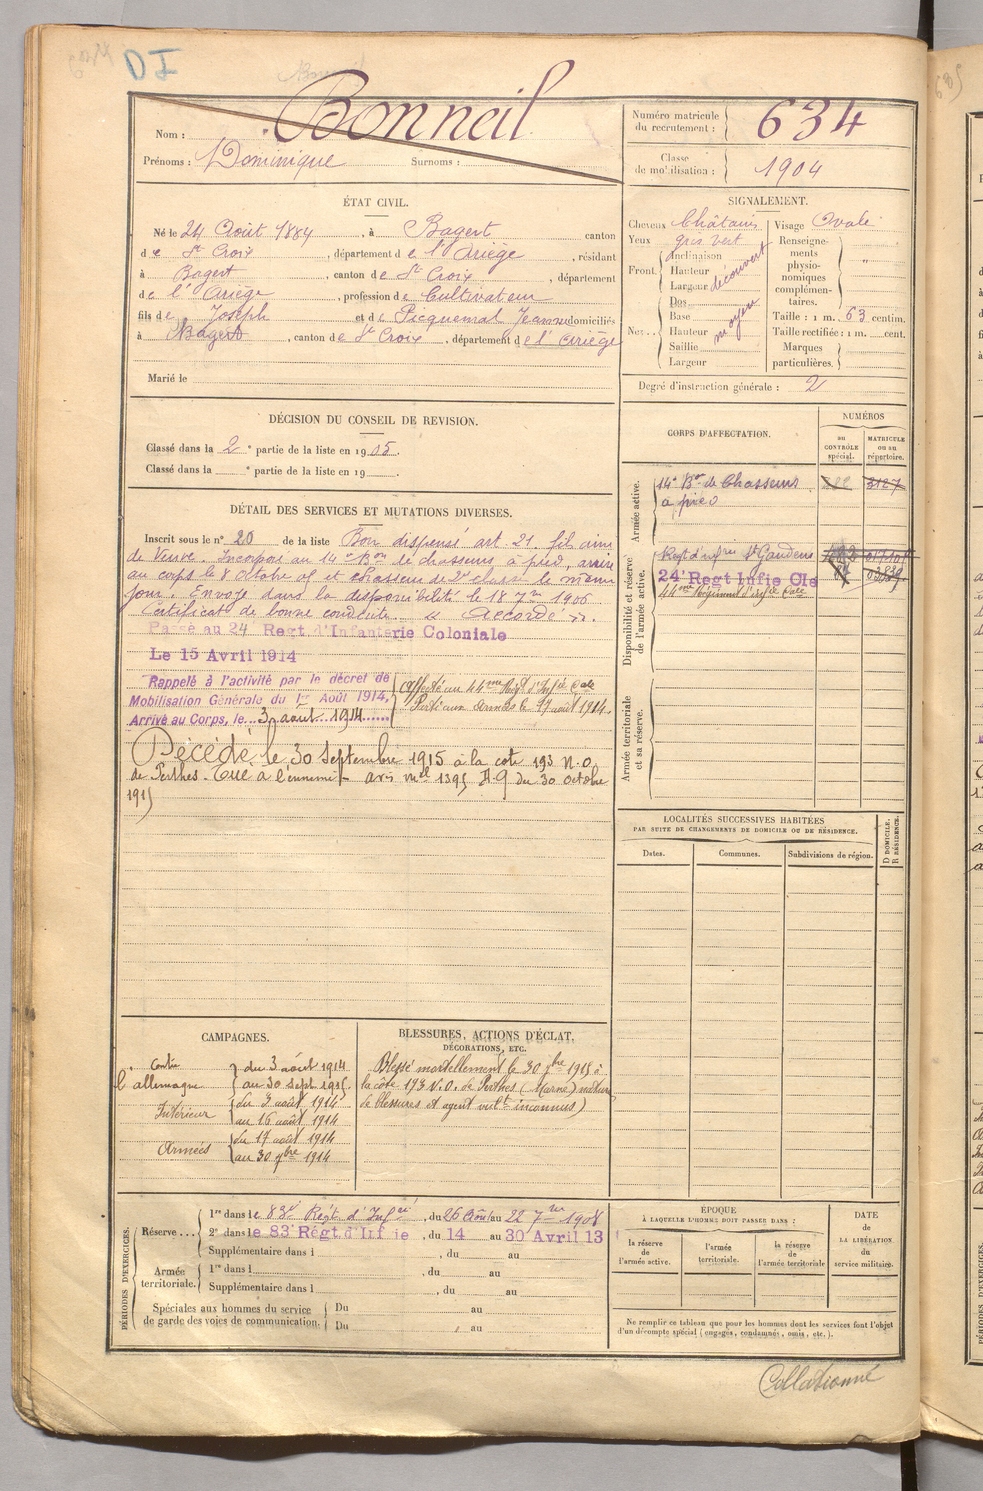 DI
Nom : Bonneil
Prénoms : Dominique Surnoms :
Numéro matricule du recrutement : 634
Classe de mobilisation : 1904
ÉTAT CIVIL.
Né le 24 Août 1884, à Bagert canton
de Ste Croix, département de l'Ariège, résidant
à Bagert, canton de Ste Croix, département
de l'Ariège, profession de Cultivateur
fils de Joseph et de Picquemal Jeanne domiciliés
à Bagert, canton de Ste Croix, département de l'Ariège
Marié le
SIGNALEMENT.
Cheveux Châtains
Yeux gris vert
Front. Inclinaison
Hauteur
Largeur
découvert
Nez. Dos
Base
Hauteur
Saillie
Largeur
moyen
Visage Ovale
Renseignements physionomiques complémentaires. "
Taille : 1 m. 63 centim.
Taille rectifiée : 1 m. cent.
Marques particulières.
Degré d'instruction générale : 2
DÉCISION DU CONSEIL DE REVISION.
Classé dans la 2e partie de la liste en 1905.
Classé dans la e partie de la liste en 19 .
DÉTAIL DES SERVICES ET MUTATIONS DIVERSES.
Inscrit sous le n° 20 de la liste Bon dispensé art 21. fils aîné
de Veuve. Incorporé au 14e Bon de chasseurs à pied, arrivé
au corps le 8 octobre 05 et chasseur de 2e classe le même
jour. Envoyé dans la disponibilité le 18 7bre 1906
Certificat de bonne conduite " Accordé ".
Passé au 24 Regt d'Infanterie Coloniale
Le 15 Avril 1914
Rappelé à l'activité par le décret de
Mobilisation Générale du 1er Août 1914,
Arrivé au Corps, le 3 août 1914
Affecté au 44me Régt d'Infie Cole
Parti aux armées le 17 août 1914.
Décédé le 30 Septembre 1915 à la cote 193 N.O.
de Perthes - Tué à l'ennemi - avis mel 1395 A.G du 30 octobre
1915
CORPS D'AFFECTATION.
NUMÉROS
au CONTRÔLE spécial.
MATRICULE ou au répertoire.
Armée active.
14e Bon de Chasseurs 3127
à pied
Disponibilité et réserve de l'armée active.
Regt d'infrie St Gaudens
24e Regt Infie Cle
44me Régiment d'Infie Cole
Armée territoriale et sa réserve.
LOCALITÉS SUCCESSIVES HABITÉES
PAR SUITE DE CHANGEMENTS DE DOMICILE OU DE RÉSIDENCE.
Dates. Communes. Subdivisions de région.
D DOMICILE. R RÉSIDENCE.
CAMPAGNES.
Contre l'allemagne du 3 août 1914
au 30 Sept. 1915.
Intérieur du 3 août 1914
au 16 août 1914
Armées du 17 août 1914
au 30 7bre 1914
BLESSURES, ACTIONS D'ÉCLAT,
DÉCORATIONS, ETC.
Blessé mortellement le 30 7bre 1915 à
la côte 193 N.O. de Perthes (Marne) nature
de blessures et agent vult inconnus)
PÉRIODES D'EXERCICES.
Réserve 1re dans le 83e Régt d'Infie, du 26 Août au 22 7bre 1908
2e dans le 83 Régt d'Inf ie, du 14 au 30 Avril 13
Supplémentaire dans l , du au
Armée territoriale. 1re dans l , du au
Supplémentaire dans l , du au
Spéciales aux hommes du service de garde des voies de communication. Du au
Du au
ÉPOQUE
À LAQUELLE L'HOMME DOIT PASSER DANS :
la réserve de l'armée active.
l'armée territoriale.
la réserve de l'armée territoriale
DATE de LA LIBÉRATION du service militaire.
Ne remplir ce tableau que pour les hommes dont les services font l'objet
d'un décompte spécial (engagés, condamnés, omis, etc.).
Collationné